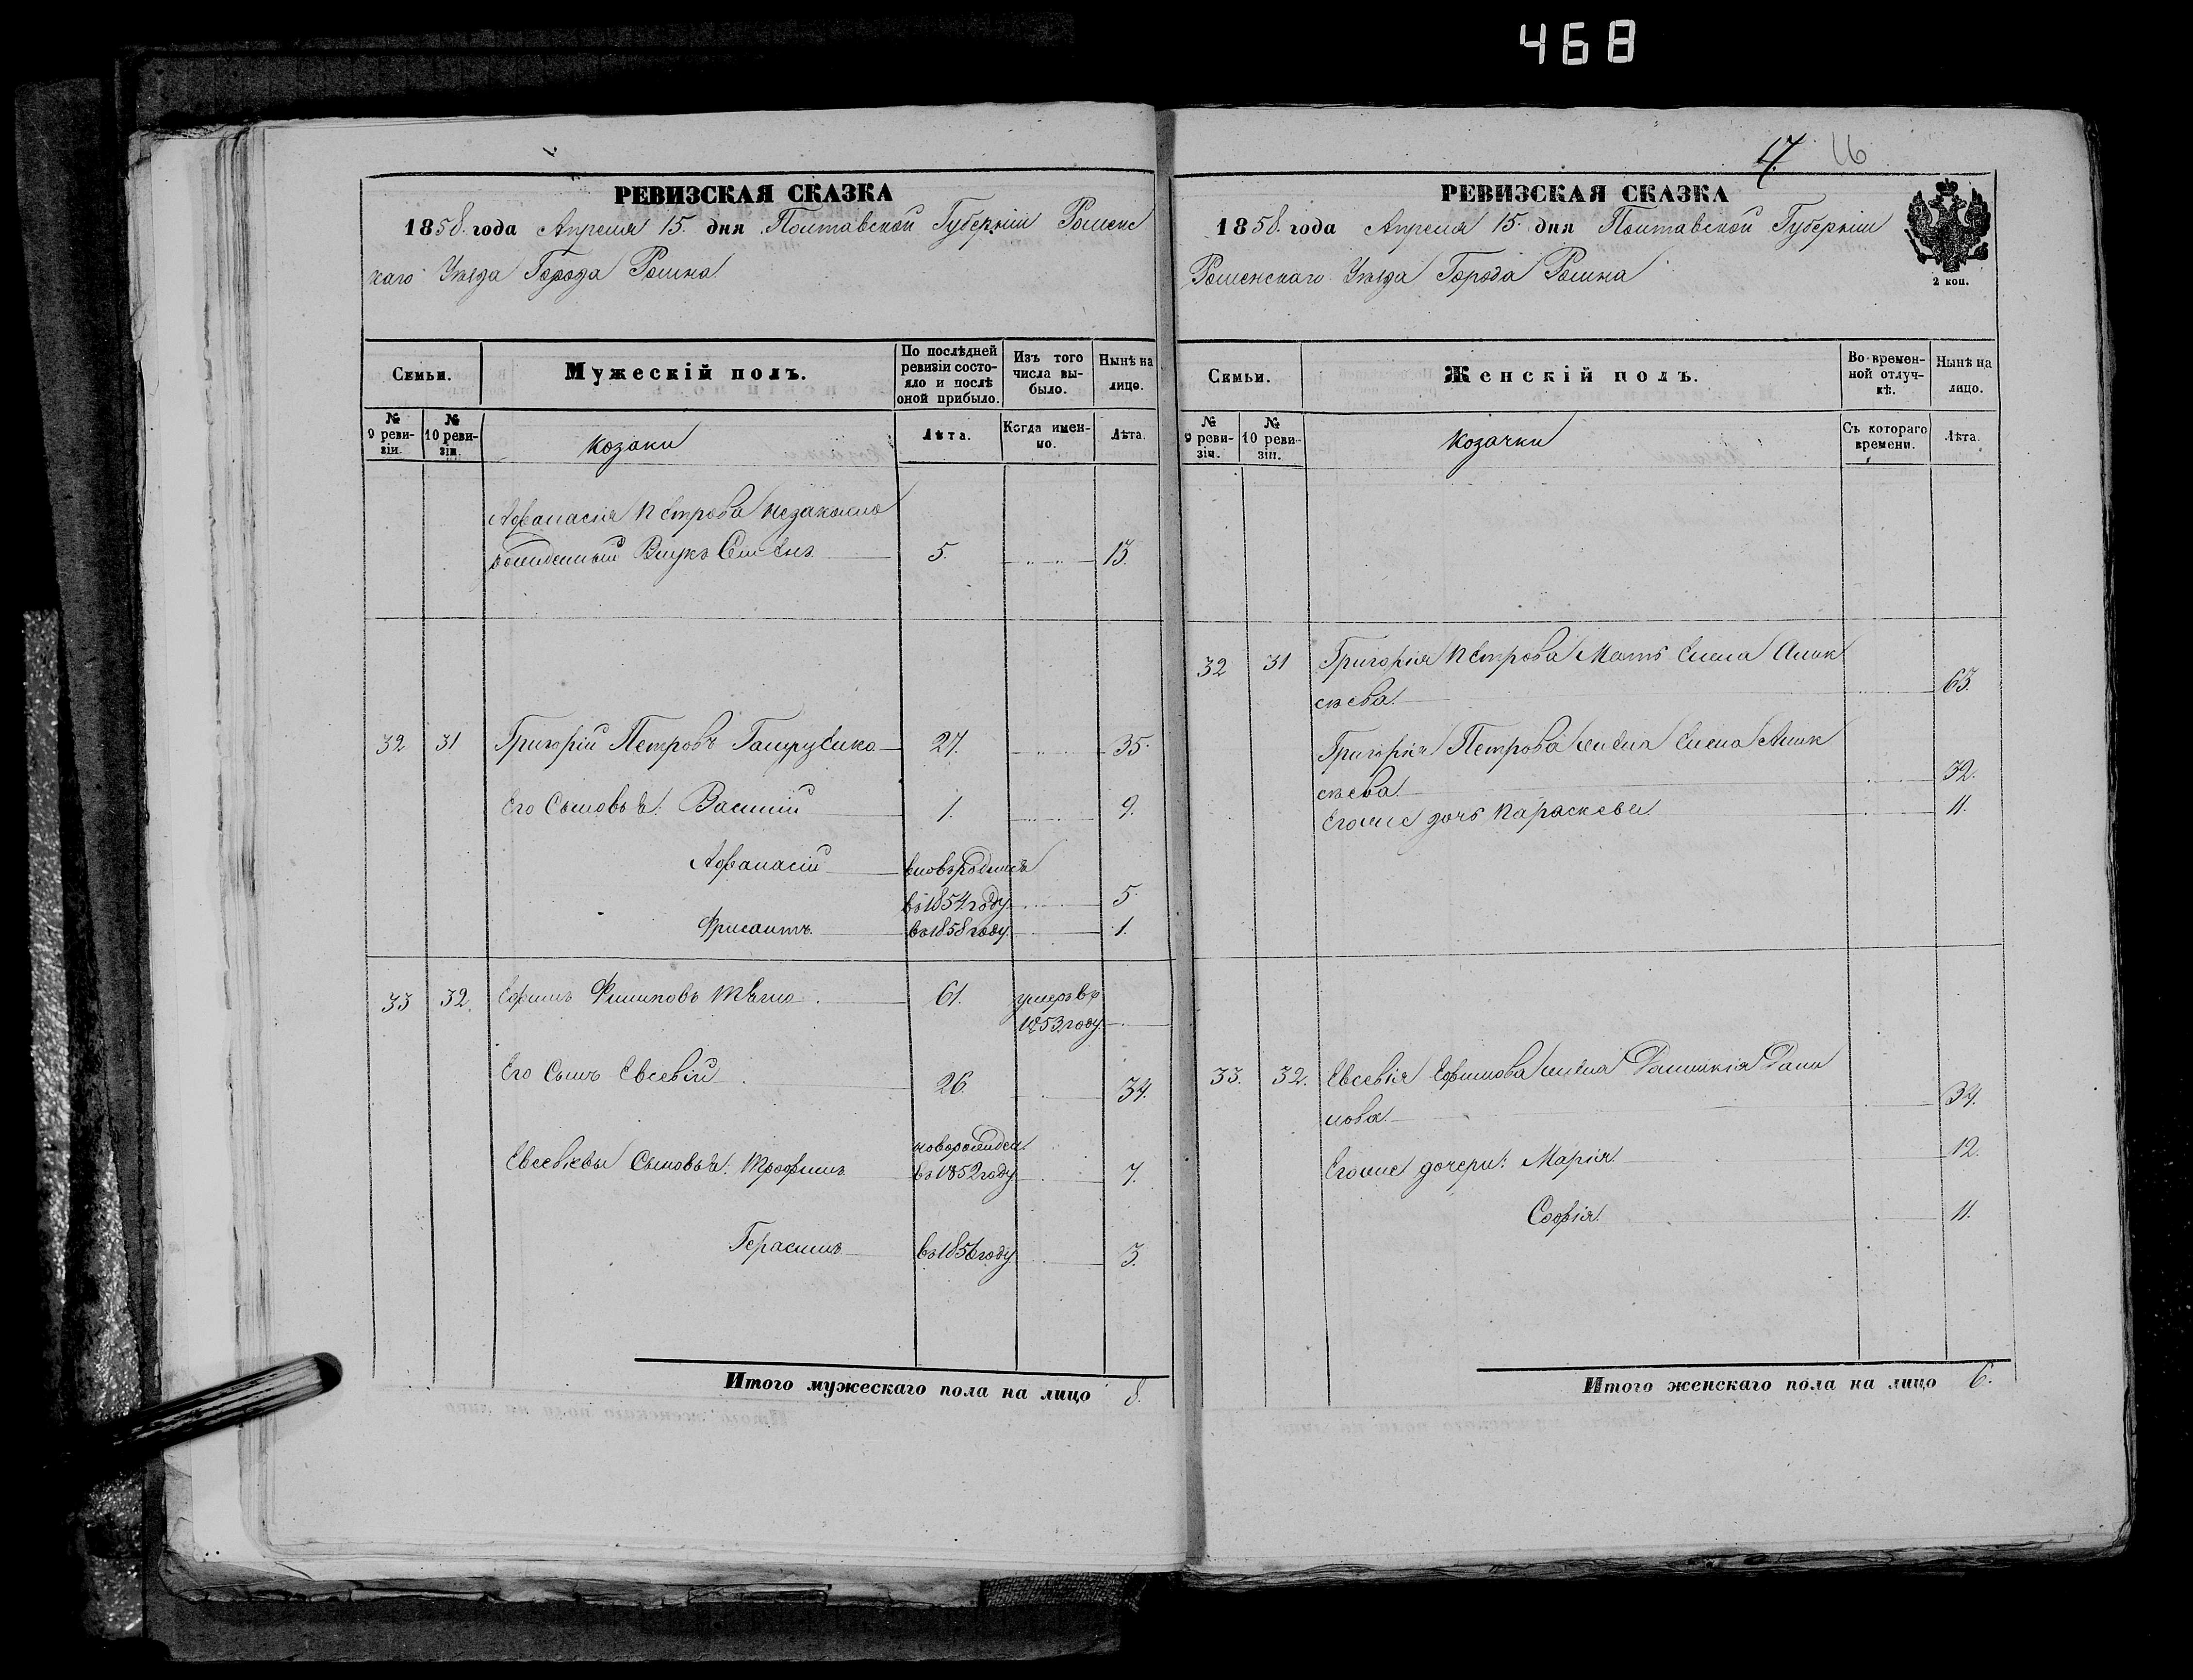 468
17. 16
РЕВИЗСКАЯ СКАЗКА
1858. года Апреля 15. дня Полтавской Губерніи Роменс
каго Уѣзда Города Ромна
Семьи.
Мужескій полъ.
По послѣдней ревизіи состояло и послѣ оной прибыло.
Изъ того числа выбыло.
Нынѣ на лицо.
№ 9 ревизіи.
№ 10 ревизіи.
козаки
Лѣта.
Когда именно.
Лѣта.
Афанасія Петрова незаконно
рожденный Внукъ Семенъ 5. 13.
32 31 Григорій Петровъ 27. 35.
Его Сыновья: Василій 1. 9.
Афанасій вновьродился
въ 1854 году. 5.
въ 1858 году. 1.
33 32. Ефимъ Филиповъ 61. умеръ въ
1853 году.
Его Сынъ Евсевій 26. 34.
новорожден.
Евсевіевы Сыновья: Трофимъ въ 1852 году 7.
Герасимъ въ 1856 году 3.
Итого мужескаго пола на лицо 8.
РЕВИЗСКАЯ СКАЗКА
1858. года Апреля 15. дня Полтавской Губерніи
Роменскаго Уѣзда Города Ромна
2 коп.
Семьи.
Женскій полъ.
Во временной отлучкѣ.
Нынѣ на лицо.
№ 9 ревизіи.
№ 10 ревизіи.
козачки
Съ котораго времени.
Лѣта.
32 31 Григорія Петрова Мать Елена Алек
сѣева. 63.
Григорія Петрова жена Елена Алек
сѣева. 32.
Егоже дочь Параскева 11.
33. 32. Евсевія Ефимова жена Дани
лова. 34.
Егоже дочери: Марія 12.
Софія. 11.
Итого женскаго пола на лицо 6.